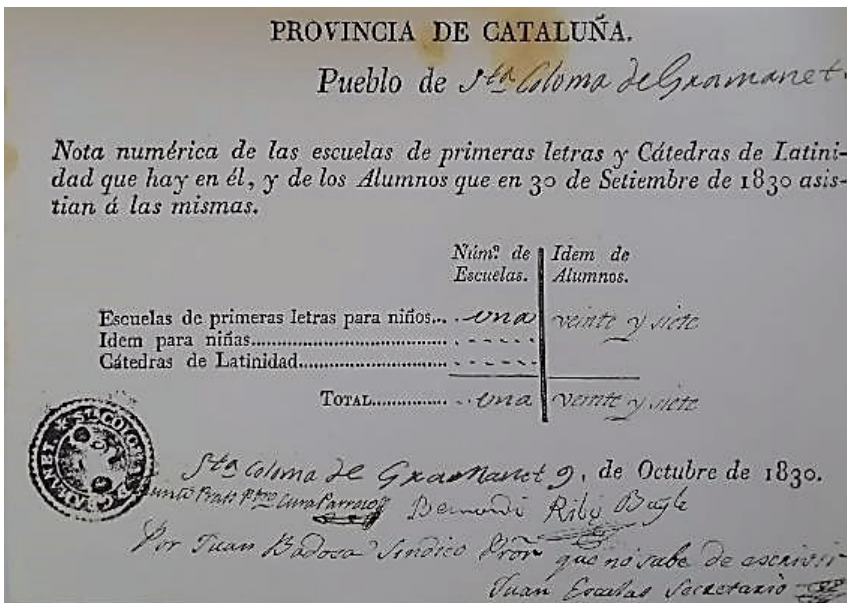 PROVINCIA DE CATALUÑA.
Pueblo de Sta. Coloma de Gramanet.
Nota numérica de las escuelas de primeras letras y Cátedras de Latini-
dad que hay en él, y de los Alumnos que en 30 de Setiembre de 1830 asis-
tian á las mismas.
Núm.º de Idem de
Escuelas. Alumnos.
Escuelas de primeras letras para niños... una veinte y siete
Idem para niñas
Cátedras de Latinidad
TOTAL............... una veinte y siete
Sta Coloma de Gramanet 9, de Octubre de 1830.
Prats Pbro Cura Parraco Bernardi Ribó Bayle
Por Juan Badosa Sindico Pror que no sabe de escrivir
Juan Esculas Secretario